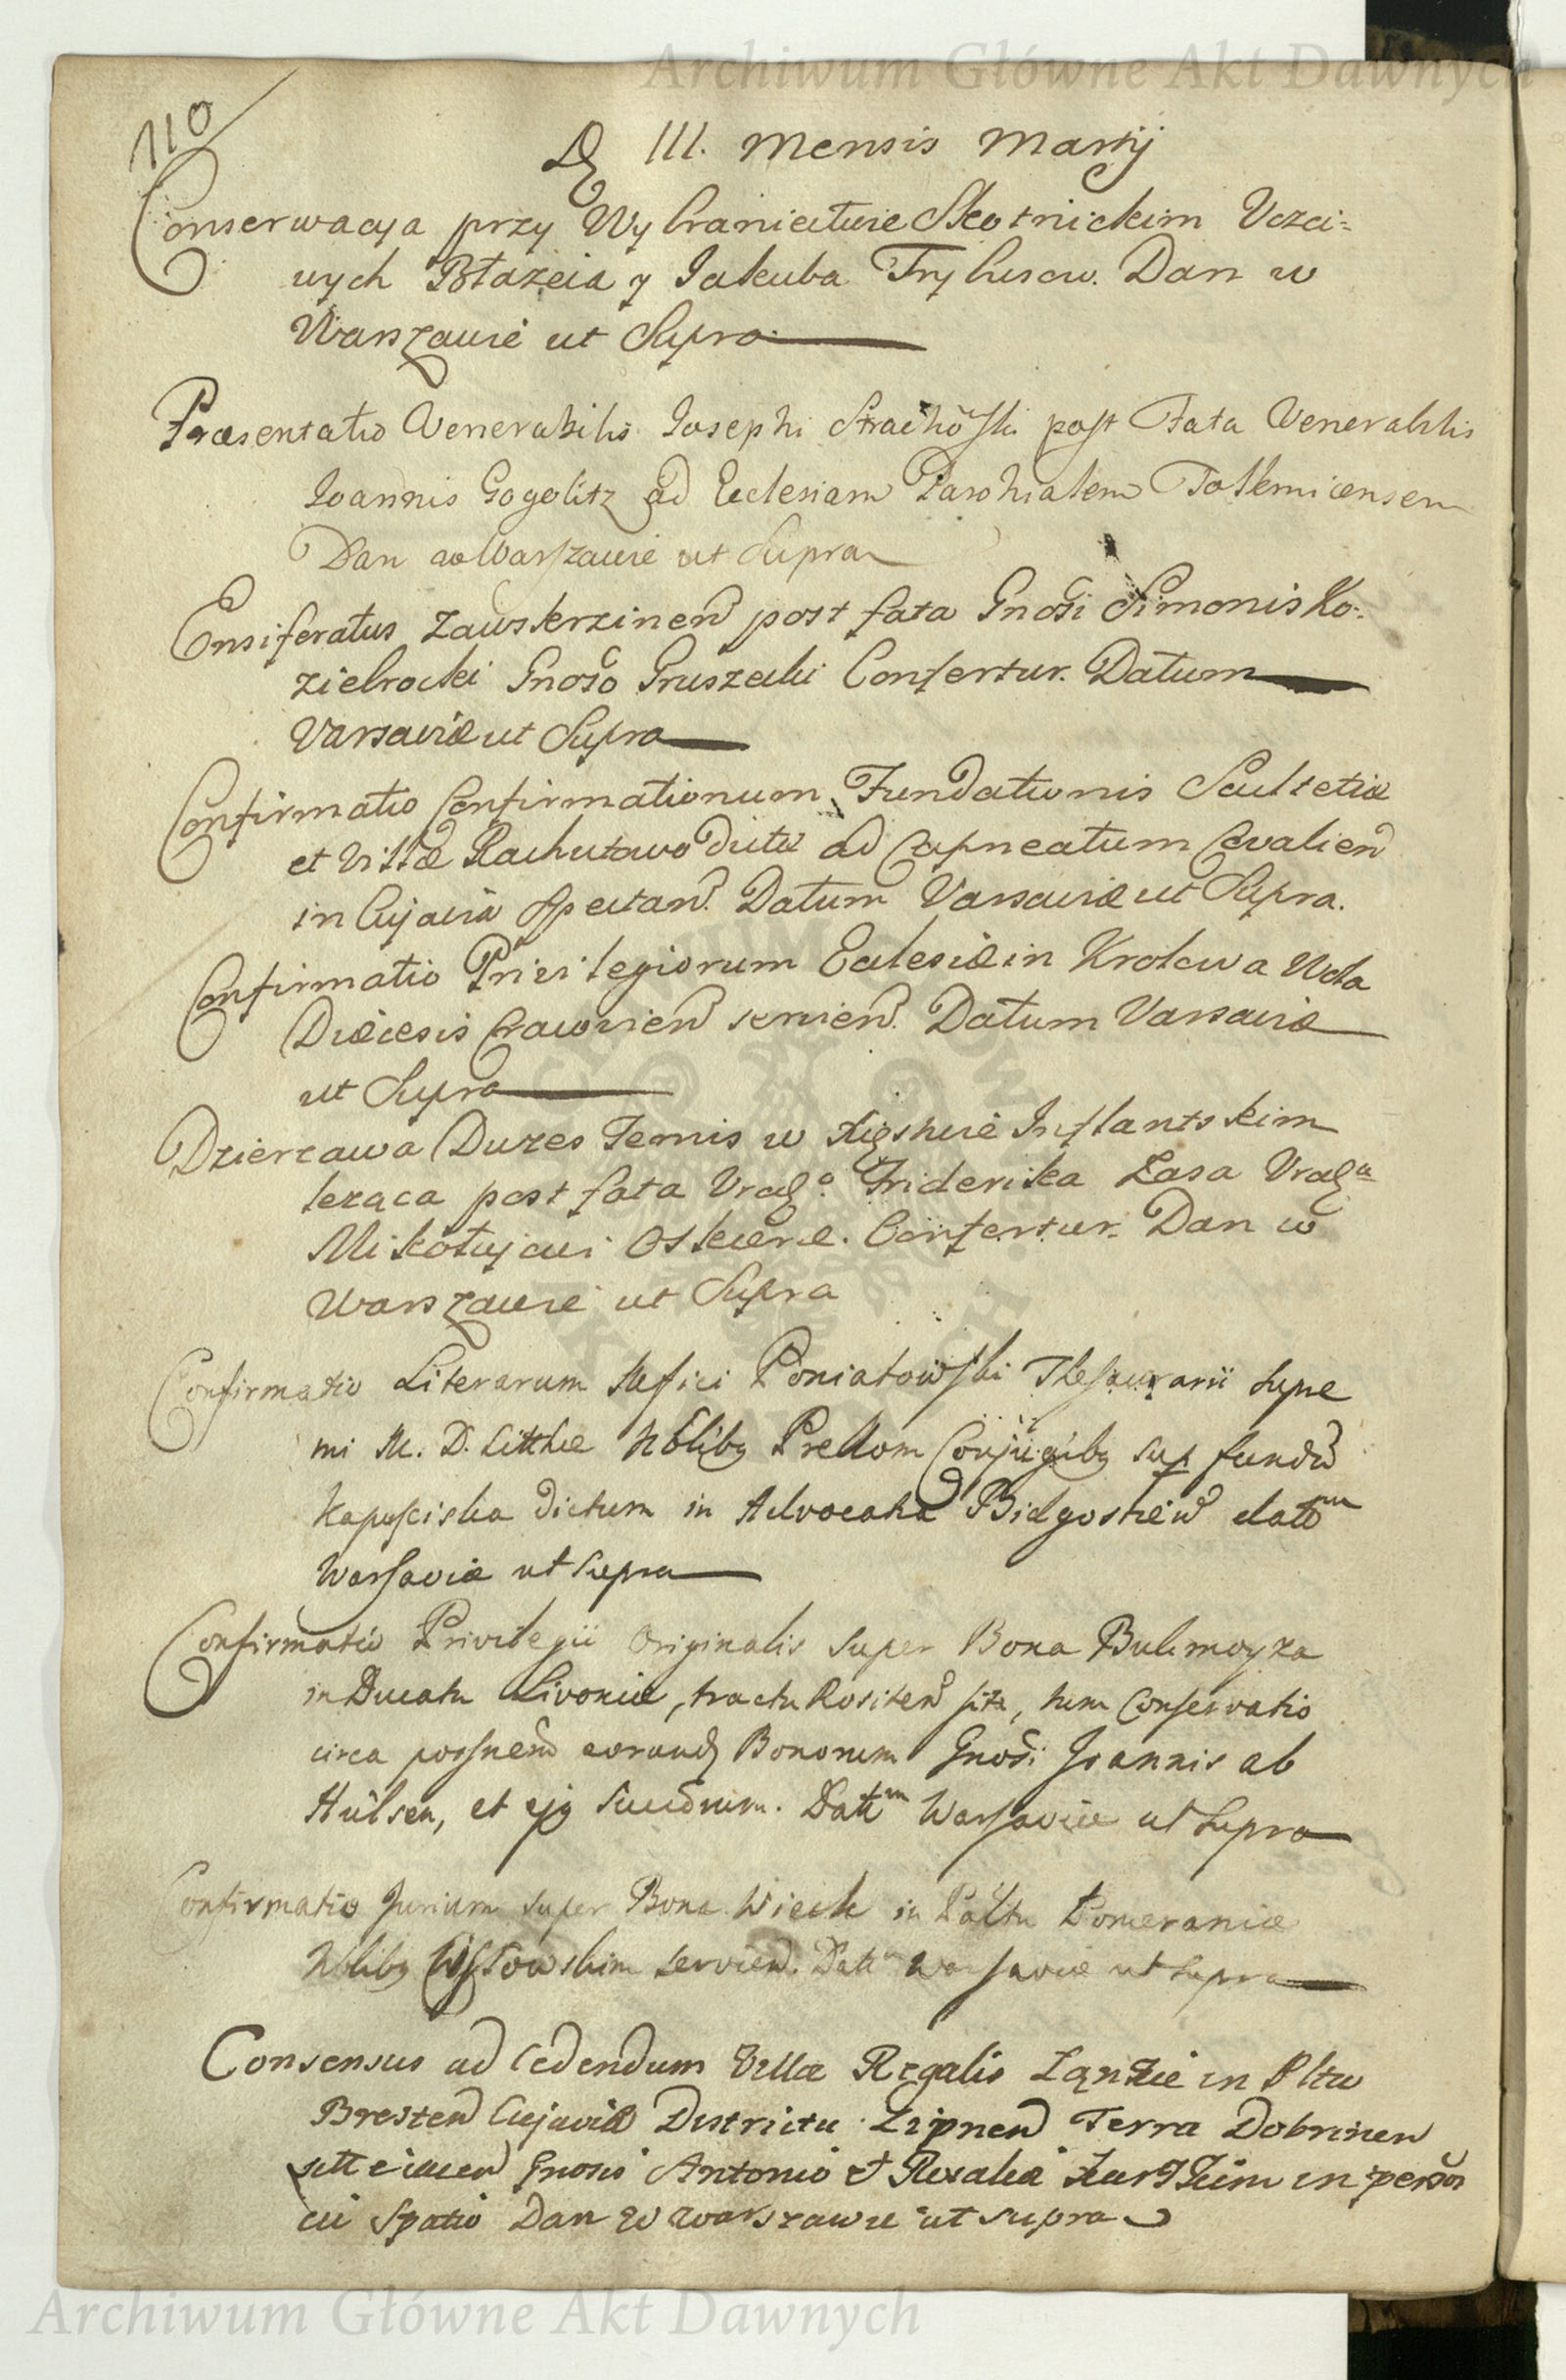 Archiwum Główne Akt Dawnych
110
D III. Mensis Martij
Conserwacya przy Wybraniectwie Skotnickim Uczci=
wych Błażeia y Jakuba Trybusow. Dan w
Warszawie ut Supra
Præsentatio Venerabilis Josephi post Fata Venerabilis
Joannis Gogolitz ad Ecclesiam Parohialem Tolkmicensem
Dan w Warszawie ut Supra
Ensiferatus Zawskrzinen post fata Gnosi Simonis Ko-
ziebrocki Gnoso Gruszecki Confertur. Datum
Varsaviæ ut Supra
Confirmatio Confirmationum, Fundationis Scultetiæ
et Villæ Rachutowo dictæ ad Capneatum Covalien
in Cujavia Spectan. Datum Varsaviæ ut Supra.
Confirmatio Privilegiorum Eclesiæ in Krolowa Wola
Diæcesis Cracovien servien. Datum Varsaviæ
ut Supra
Dzierzawa Duxes Temis w Xięstwie Inflantskim
leząca post fata Urodz° Friderika Lasa Urodz
Mikołajowi Confertur. Dan w
Warszawie ut Supra
Confirmatio Literarum Mgfici Poniatowski Thesaurarii Supre
mi M. D. Litthæ Nbliby Conjugiby sup fundū
Kapusciska dictum in Advocatia Bidgostien datum
Warsaviæ ut Supra
Confirmatio Privilegii Originalis super Bona Bulimoyza
in Ducatu Livoniæ, tractu Rositen sita, tum Conservatio
circa possnem eorund Bonorum Gnosi Joannis ab
Hülsen, et ejg Succōrum. Dattm Warsaviæ ut Supra
Confirmatio Jurium super Bona Wieck in Paltu Pomeraniæ
Nbliby servien. Datt Warsaviæ ut Supra
Consensus ad Cedendum Villæ Regalis in Pltu
Bresten Cujaviæ Districtu Lipnen Terra Dobrinen
Gnosis Antonio et Rozalia in
Spatio Dan w Warszawie ut supra
Archiwum Główne Akt Dawnych